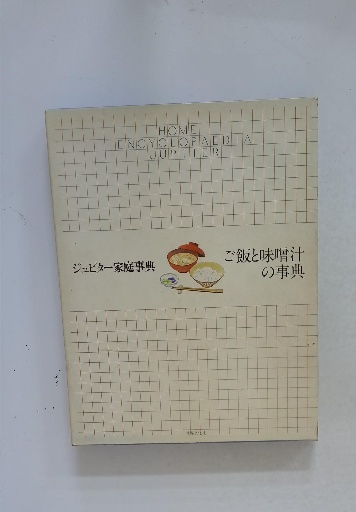 HOME
ENCYCLOPAEDIA
JUPITER
ジュピター家庭事典
ご飯と味噌汁
の事典